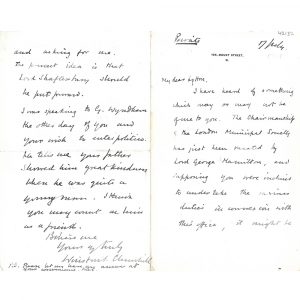 Private
17 July
105, MOUNT STREET,
W.
My dear Lytton,
I have heard of something
which may or may not be
gone to you. The Chairmanship
of the London Municipal Society
has just been vacated by
Lord George Hamilton, and
supposing you were inclined
to undertake the various
duties in connexion with
this office, it might be
and asking for me.
The present idea is that
Lord Shaftesbury should
be put forward.
I was speaking to G. Wyndham
the other day of you and
your wish to enter politics.
He tells me your father
showed him great kindness
when he was quite a
young man. I think
you may count on him
as a friend.
Believe me
Yours vy truly
Winston S. Churchill
P.S. Please let me have my answer at
your convenience